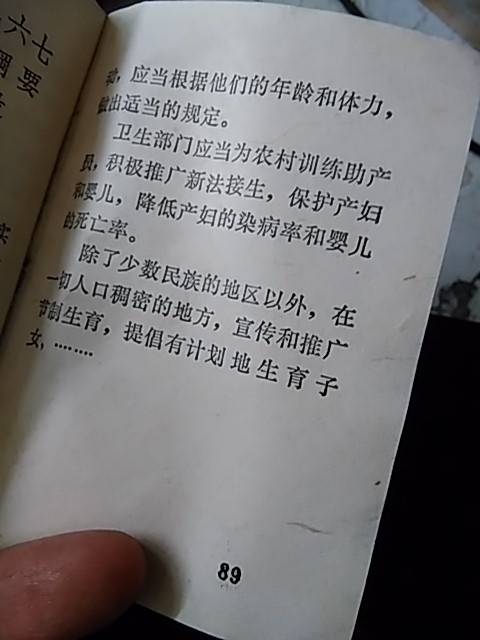 六七
纲要
动，应当根据他们的年龄和体力，
做出适当的规定。
卫生部门应当为农村训练助产
员，积极推广新法接生，保护产妇
和婴儿，降低产妇的染病率和婴儿
的死亡率。
除了少数民族的地区以外，在
一切人口稠密的地方，宣传和推广
节制生育，提倡有计划地生育子
女，……
89